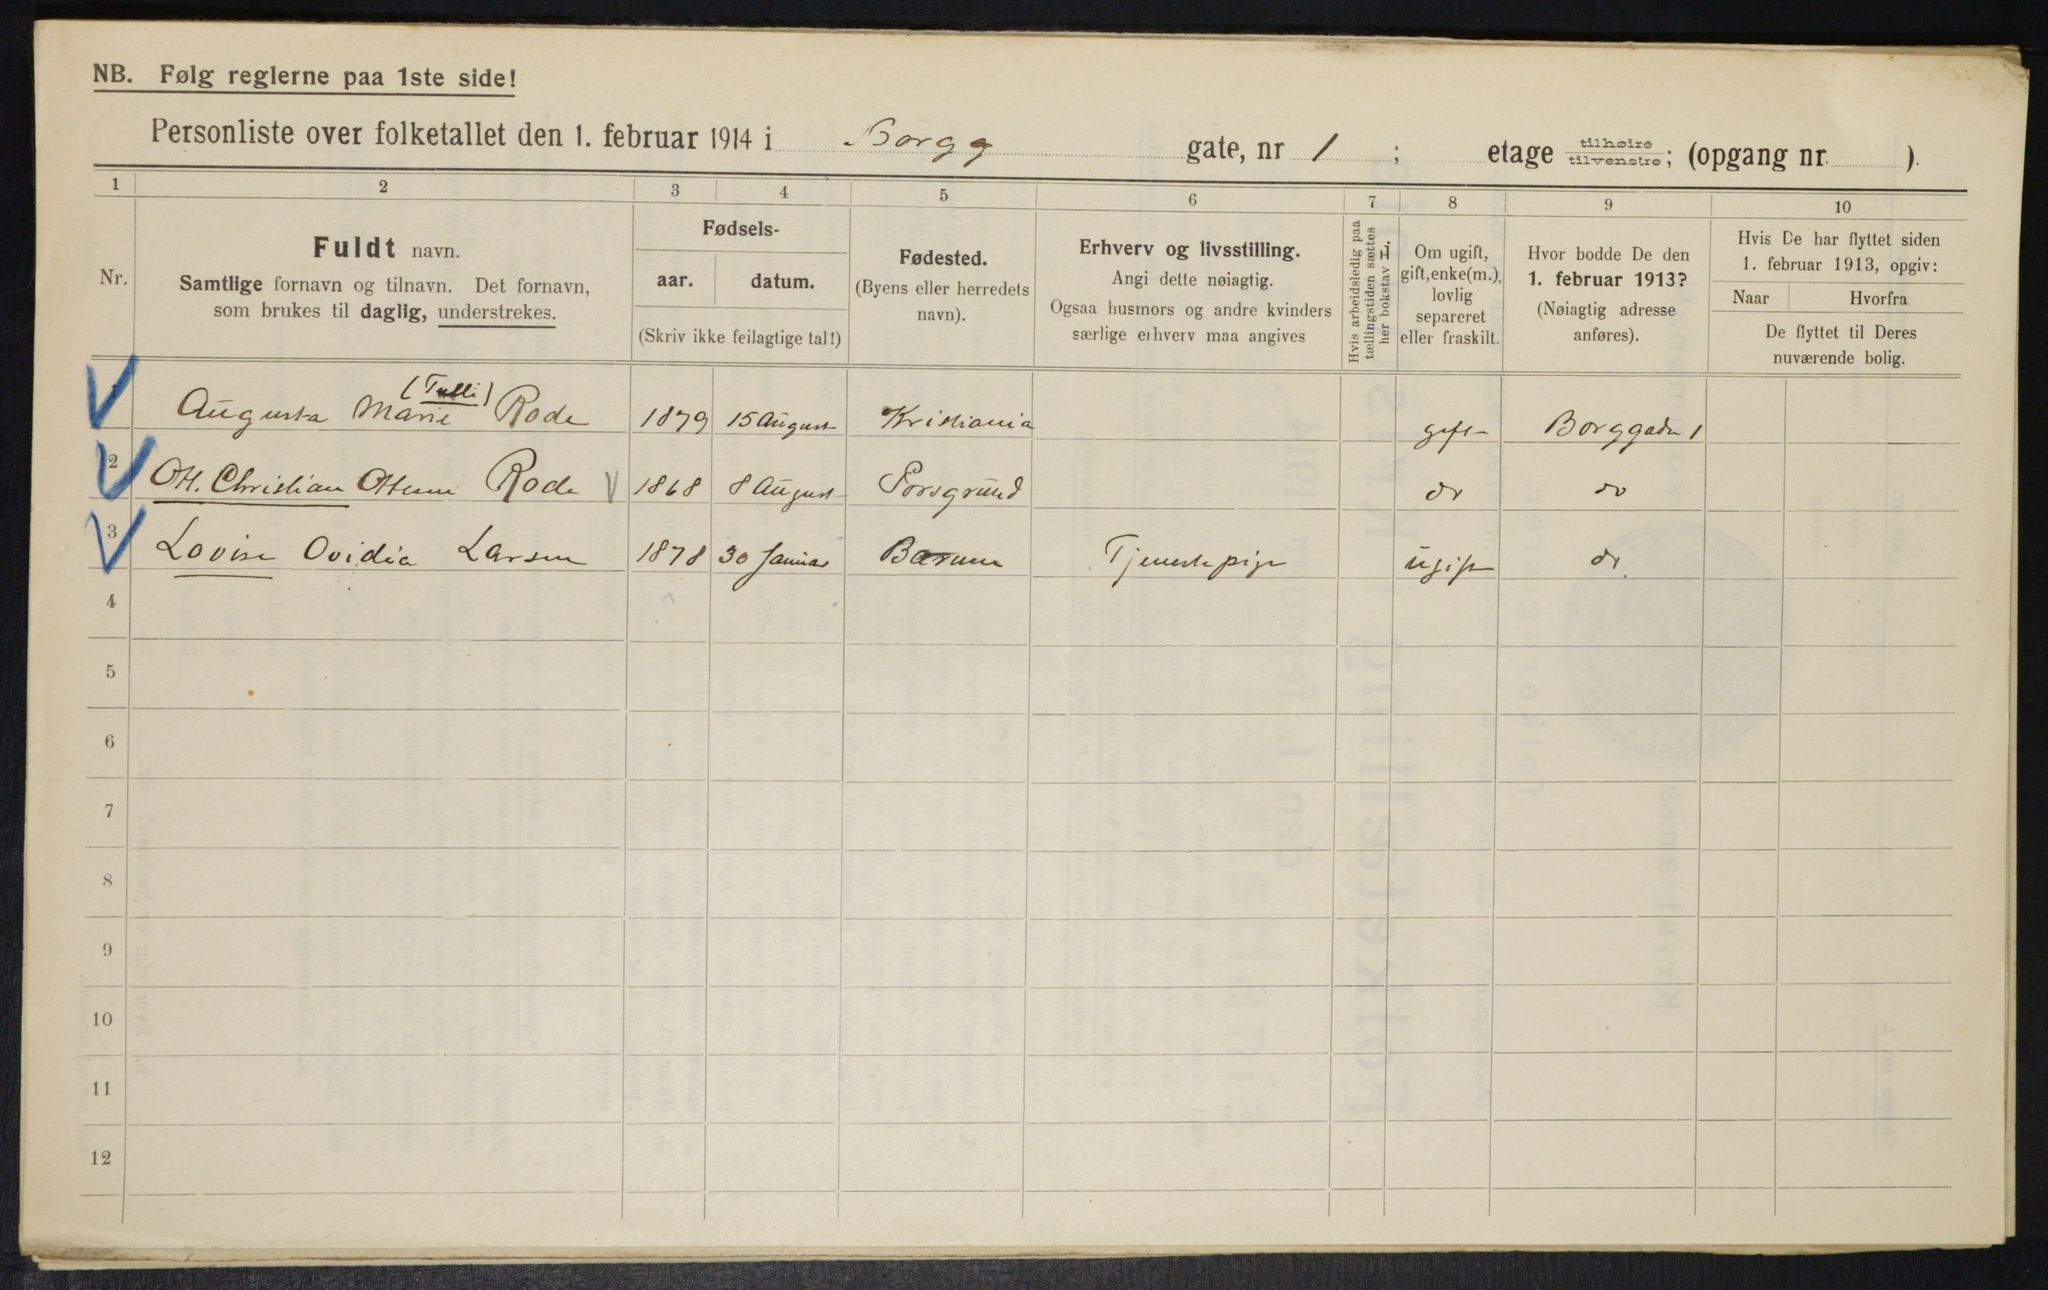 NB. Følg reglerne paa 1ste side!
Personliste over folketallet den 1. februar 1914 i Borgg gate, nr 1 ; etage tilhøire tilvenstre; (opgang nr. ).
1 2 3 4 5 6 7 8 9 10
Nr.
Fuldt navn.
Samtlige fornavn og tilnavn. Det fornavn,
som brukes til daglig, understrekes.
Fødsels-
aar. datum.
(Skriv ikke feilagtige tal!)
Fødested.
(Byens eller herredets
navn).
Erhverv og livsstilling.
Angi dette nøiagtig.
Ogsaa husmors og andre kvinders
særlige erhverv maa angives
Hvis arbeidsledig paa
tællingstiden sættes
her bokstav L.
Om ugift,
gift, enke(m.),
lovlig
separeret
eller fraskilt.
Hvor bodde De den
1. februar 1913?
(Nøiagtig adresse
anføres).
Hvis De har flyttet siden
1. februar 1913, opgiv:
Naar Hvorfra
De flyttet til Deres
nuværende bolig.
(Tulli)
1 Augusta Marie Rode 1879 15 August Kristiania gift Borggaden 1
2 Ott. Christian Ottesen Rode 1868 8 August Porsgrund do do
3 Lovise Ovidia Larsen 1878 30 Januar Bærum Tjenestepige ugift do
4
5
6
7
8
9
10
11
12